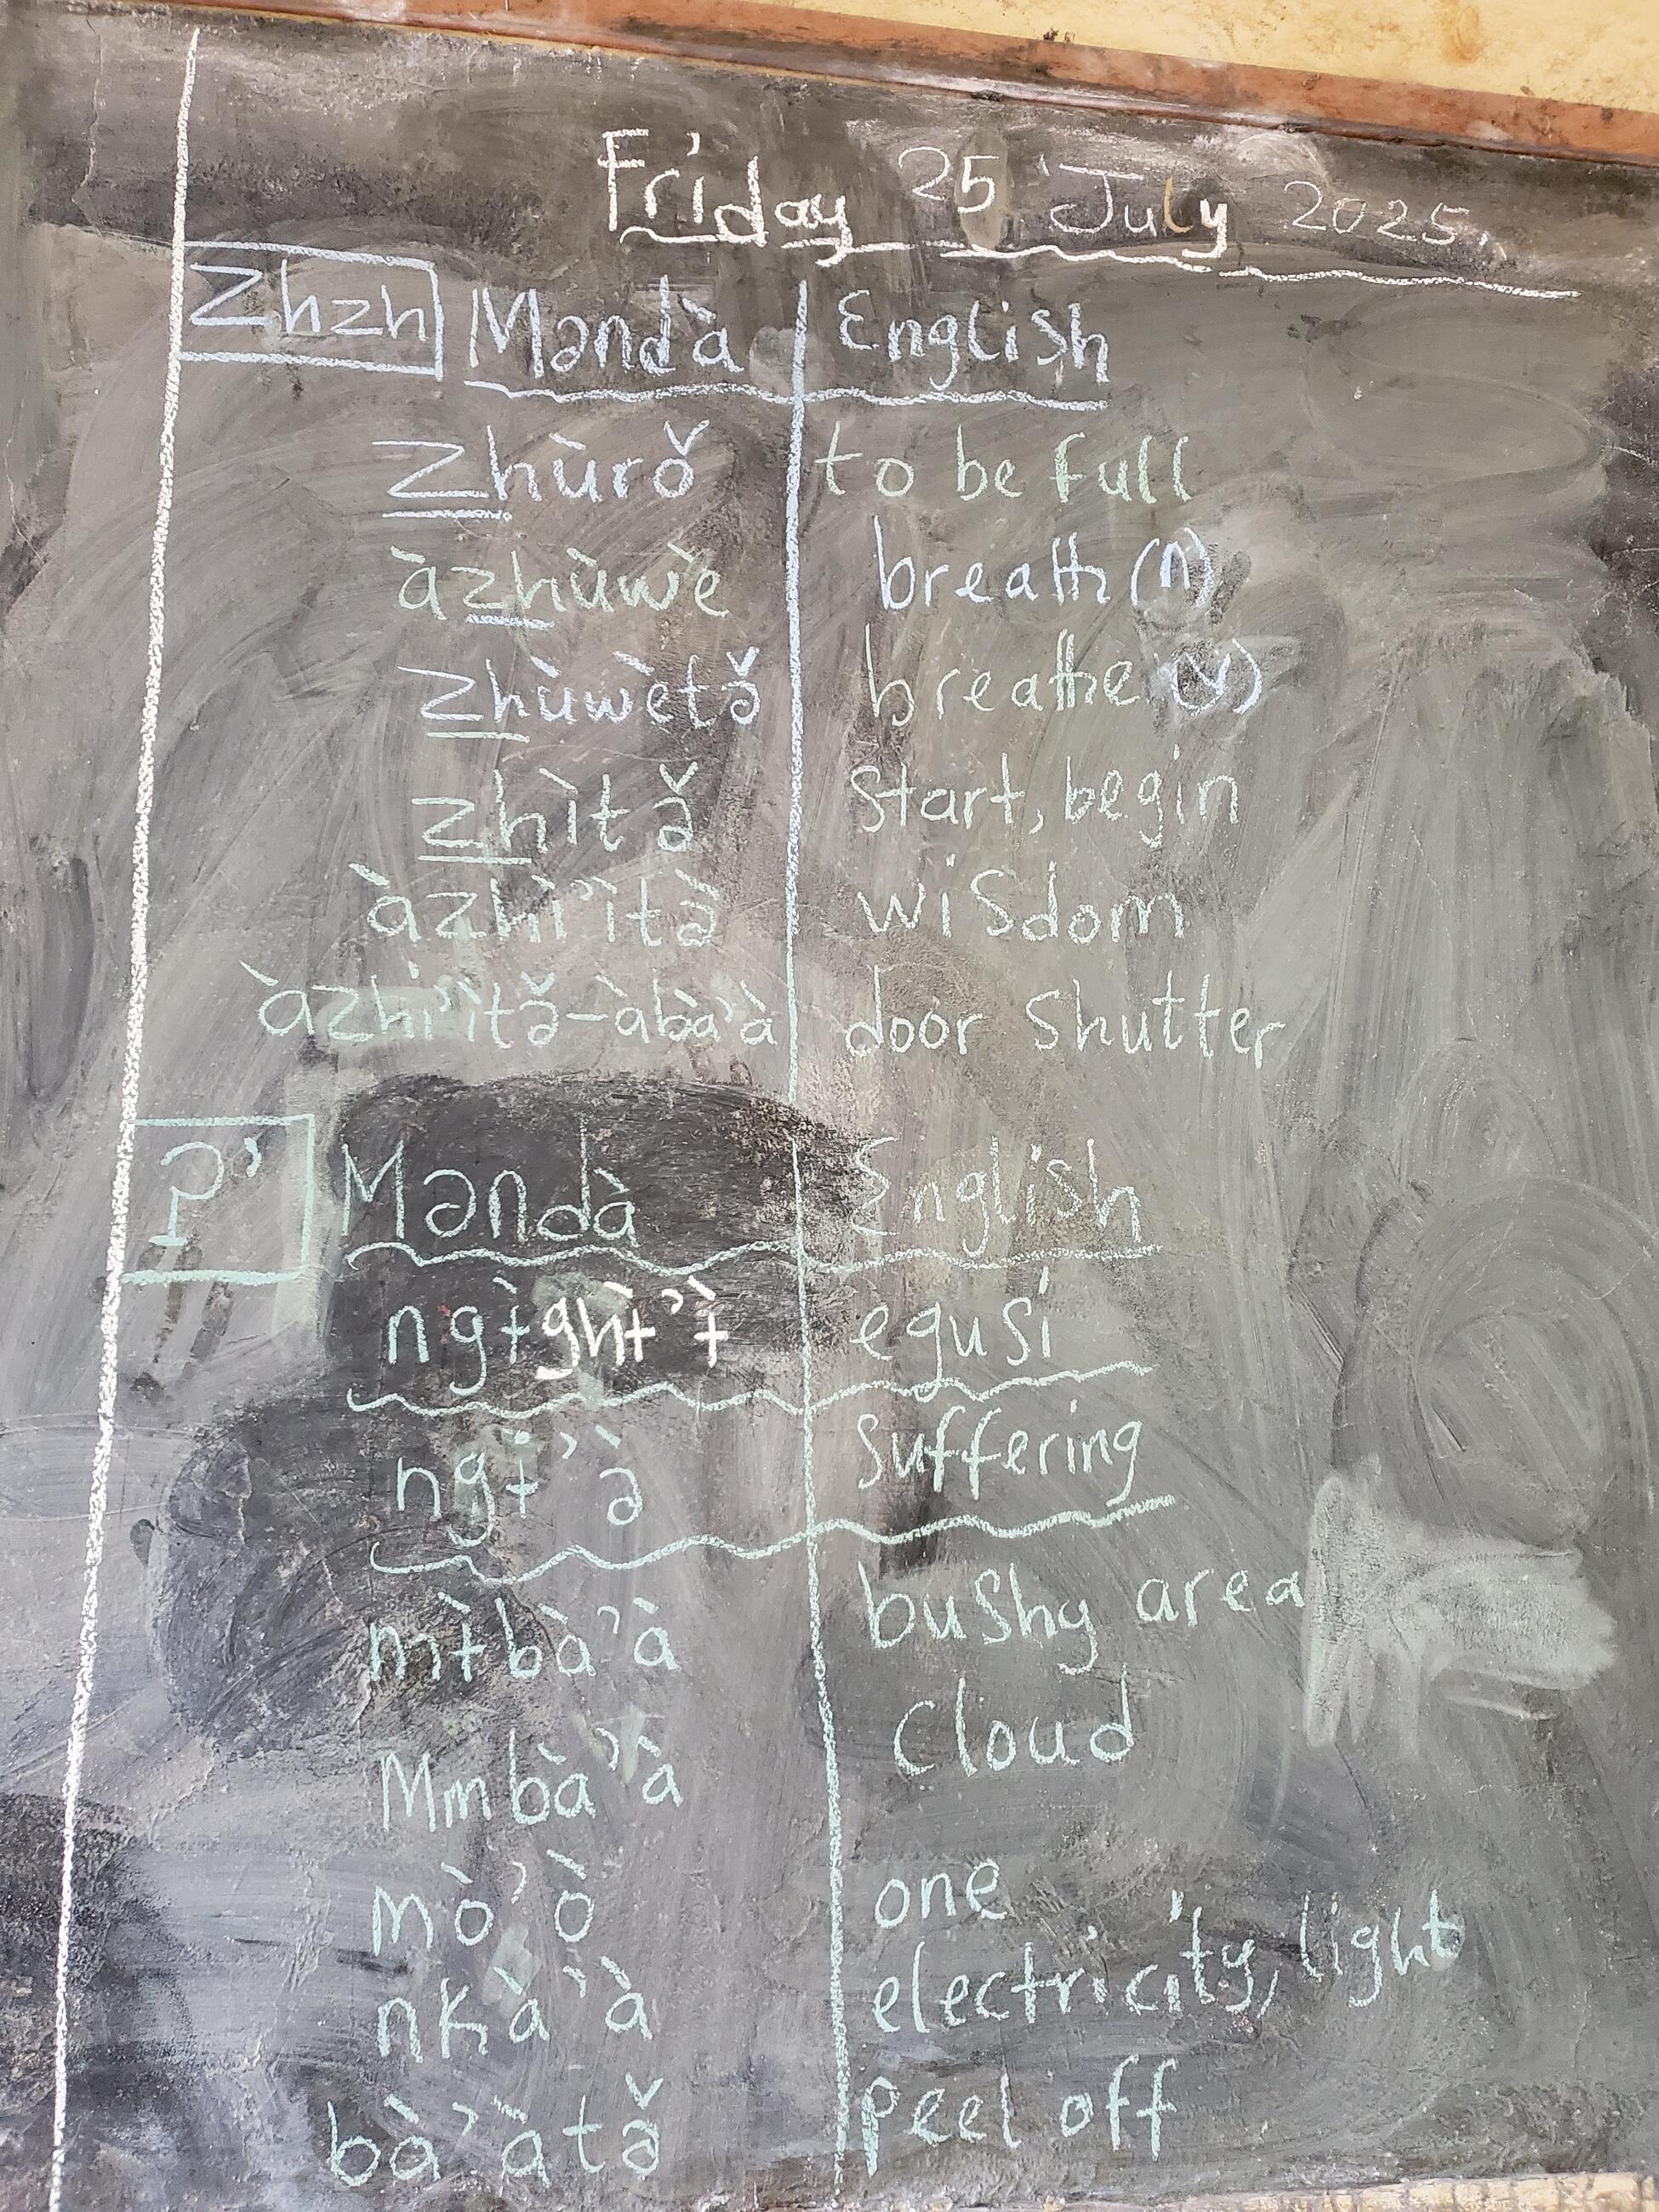 Friday 25 July 2025.
Zhzh Məndà English
Zhùrǒ to be full
àzhùwè breath (n)
zhùwètə̌ breathe (v)
zhìtə̌ start, begin
àzhì'ìtə̀ wisdom
àzhi'ìtə̌-àbà'à door shutter
ʔ ' Məndà English
ngɨ̀ghɨ̀'ɨ̀ egusi
ngɨ̀'ə̀ suffering
mɨ̀bà'à bushy area
Mmbà'à cloud
mò'ò one
nkà'à electricity, light
bà'àtə̌ peel off